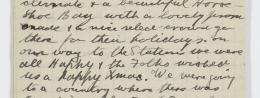 & a beautiful Horse
Shoe Bay with a lovely prom
enade & a nice select
there for their holidays. on
our way to the Station we were
all Happy & the Folks wished
us a Happy Xmas. We were going
to a country where there was